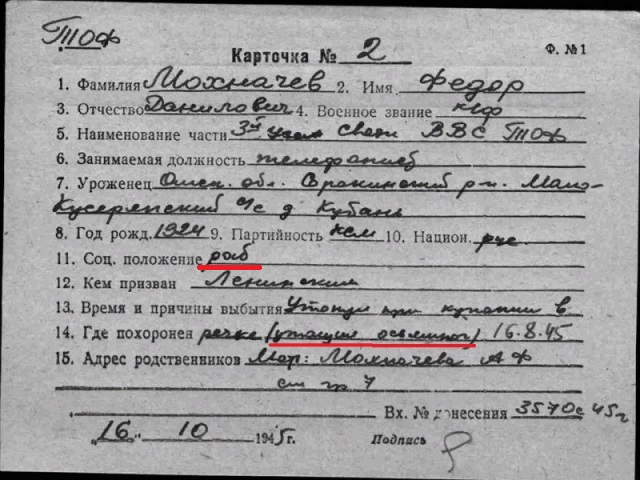 ТОФ
Карточка № 2 Ф. №1
1. Фамилия Мохначев 2. Имя Федор
3. Отчество Данилович 4. Военное звание к/ф
5. Наименование части 3й Связи ВВС ТОФ
6. Занимаемая должность телефонист
7. Уроженец Омск. обл. р-н. Мало-
с/с д Кубань
8. Год рожд. 1924 9. Партийность ксм 10. Национ. рус
11. Соц. положение раб
12. Кем призван Ленинским
13. Время и причины выбытия Утонул при купании в
14. Где похоронен речке (утащил осьминог) 16.8.45
15. Адрес родственников Мохначева А Ф
Вх. № донесения 3570с 45г
"16" 10 1945г. Подпись